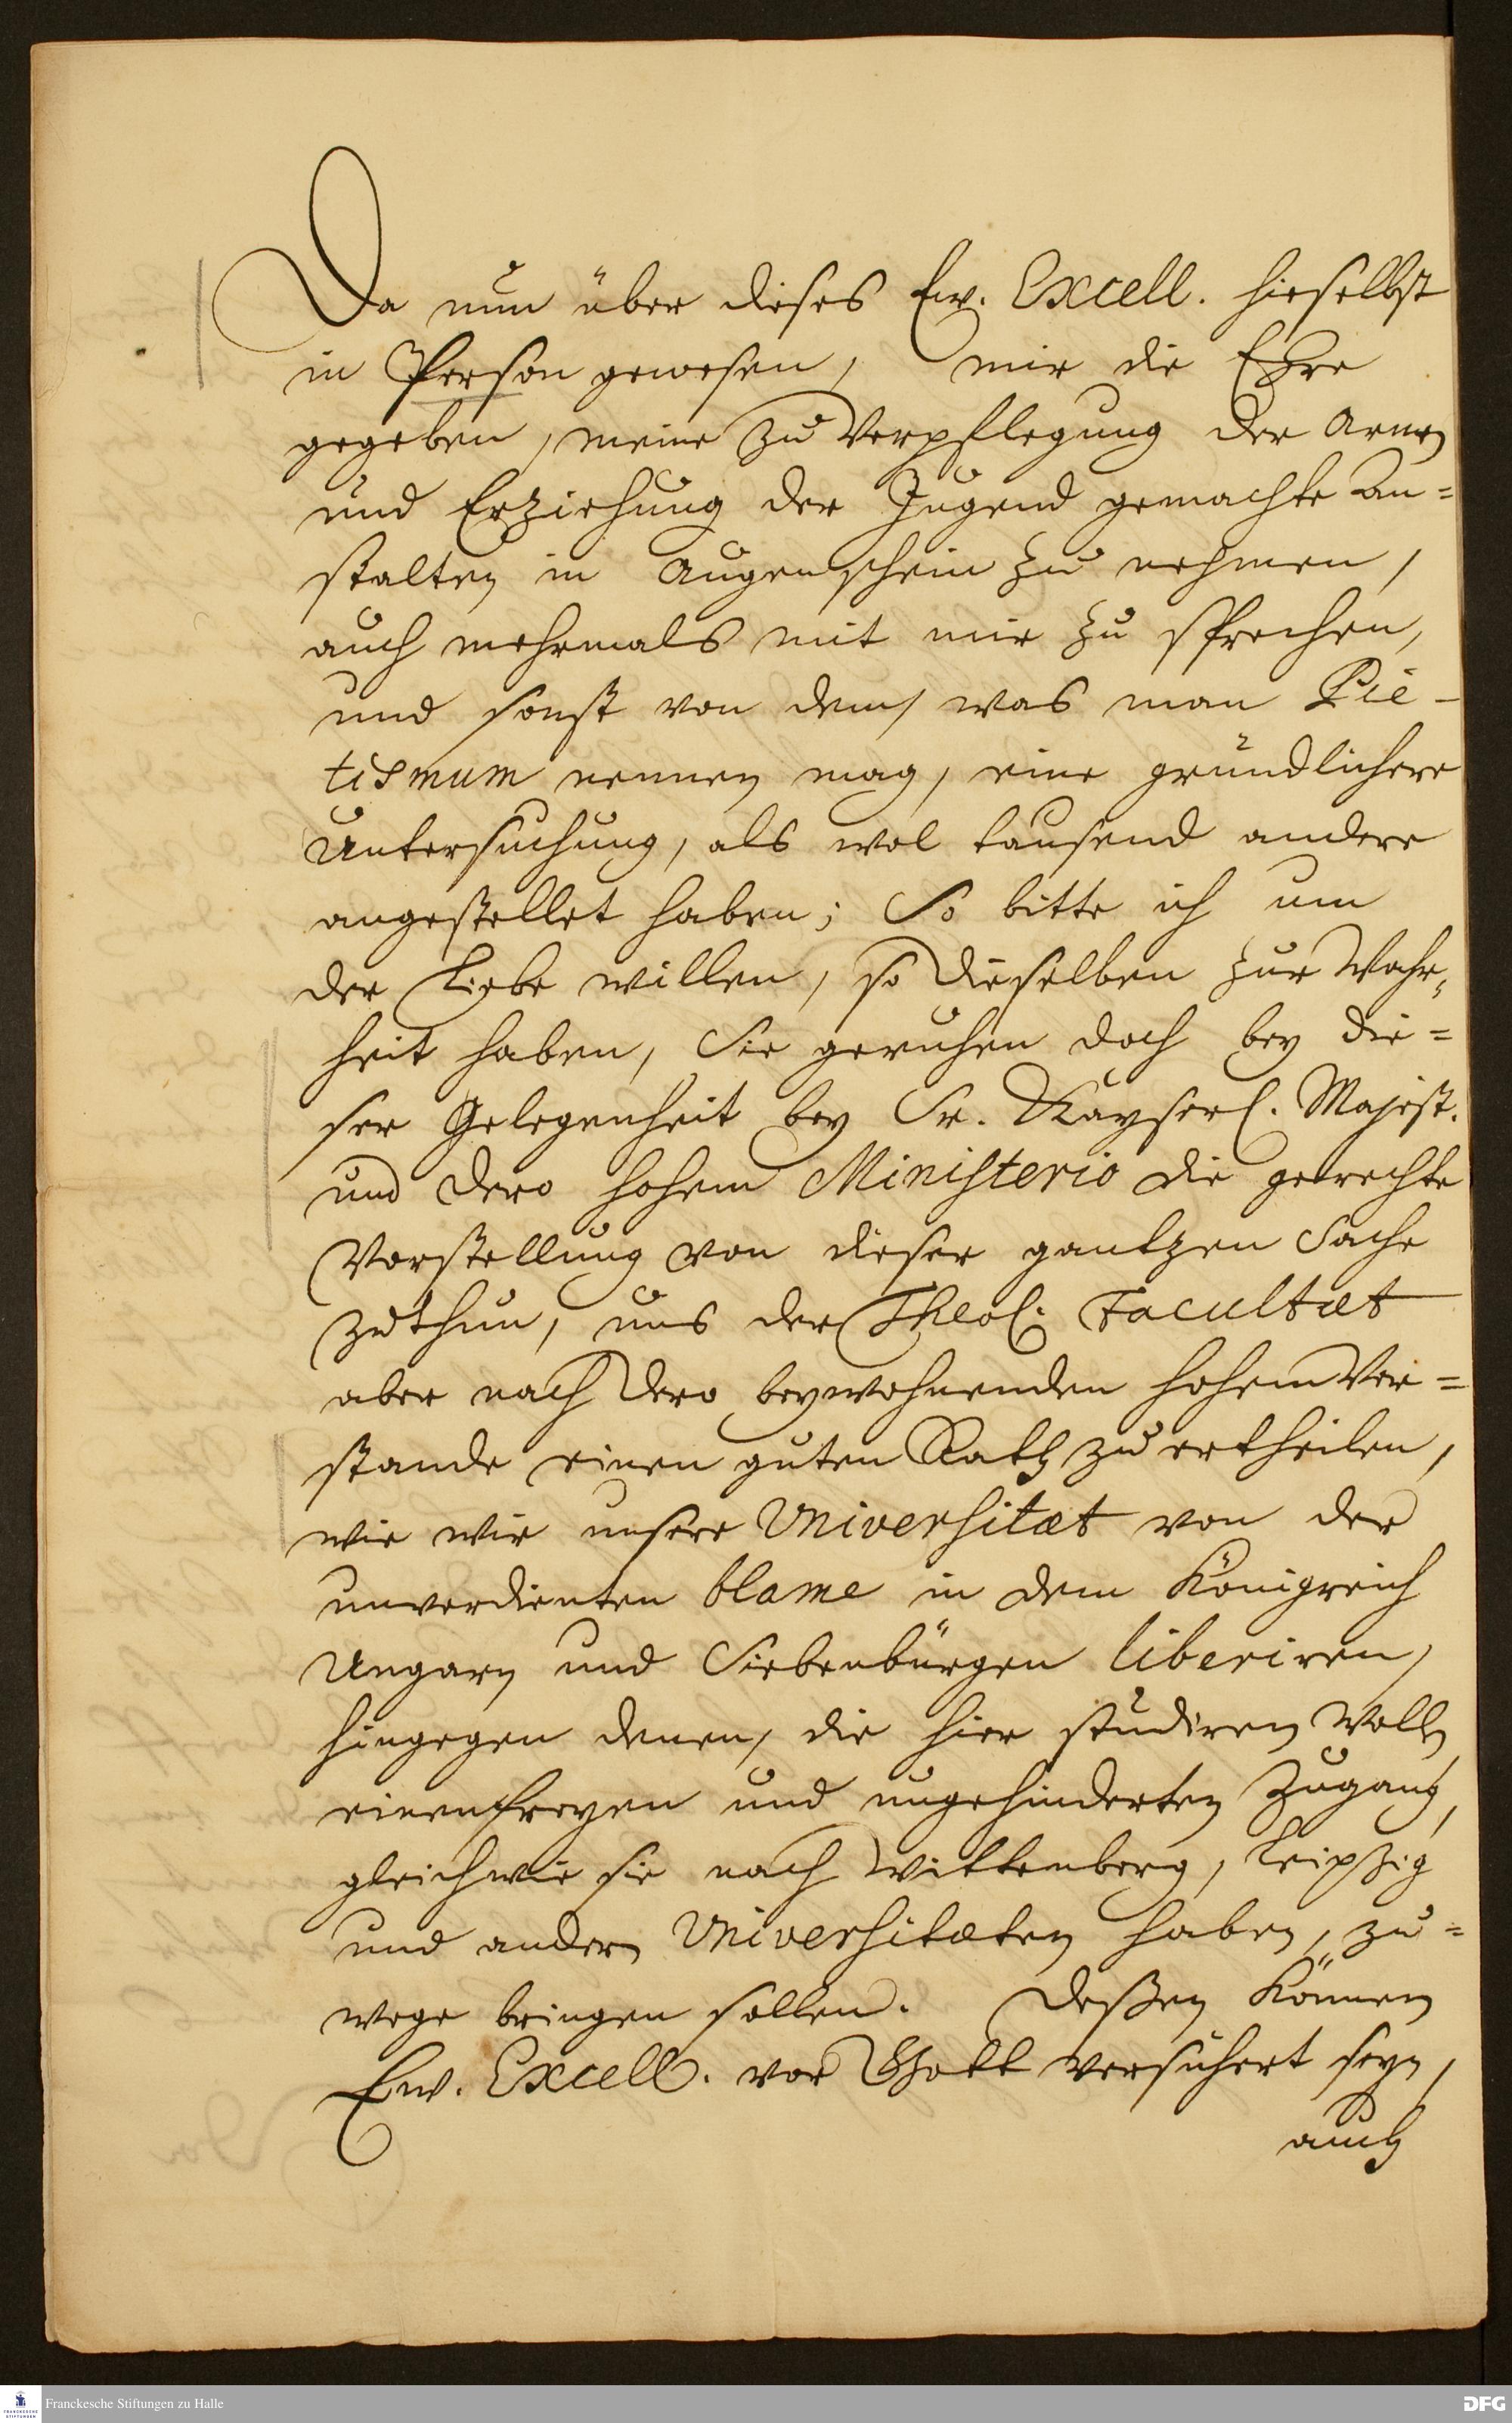 Da nun über dieses Ew. Excell. hieselbst
in Person gewesen, mir die Ehre
gegeben, meine zu Verpflegung der Armen
und Erziehung der Jugend gemachte An=
stalten in Augenschein zu nehmen,
auch mehrmals mit mir zu sprechen,
und sonst von dem, was man Pie-
tismum nennen mag, eine gründlichere
Untersuchung, als wol tausend andere
angestellet haben; So bitte ich um
der Liebe willen, so dieselben zur Wahr„
heit haben, Sie geruhen doch bey die=
ser Gelegenheit bey Sr. Kayserl. Majest.
und dero hohem Ministerio die gerechte
Vorstellung von dieser gantzen Sache
zuthun, uns der Theol. Facultæt
aber nach dero beywohnenden hohem Ver=
stande einen guten Rath zu ertheilen,
wie wir unsere Universitæt von der
unverdienten blame in dem Königreich
Ungarn und Siebenbürgen liberiren,
hingegen denen, die hier studiren wolln
einen freyen und ungehinderten Zugang,
gleichwie sie nach Wittenberg, Leipzig
und andern Universitæten haben, zu=
wege bringen sollen. Deßen können
Ew. Excell. vor Gott versichert seyn,
auch
Franckesche Stiftungen zu Halle
FRANCKESCHE STIFTUNGEN
DFG